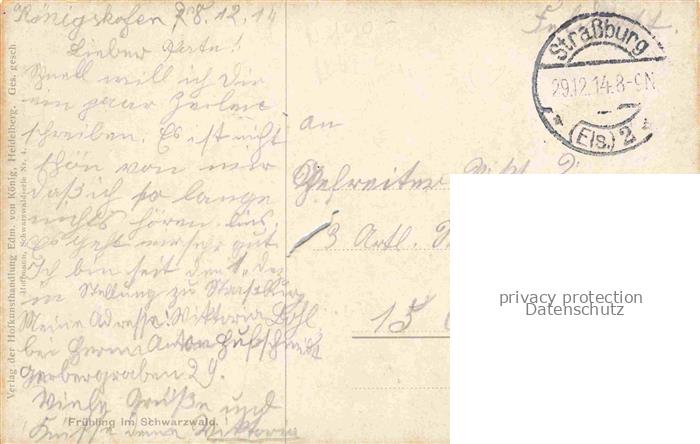 Königshofen 28.12.14
Lieber Pate!
Schnell will ich Dir
ein paar Zeilen
schreiben. Es ist nicht
schön von mir
daß ich so lange
nichts hören
Es geht mir sehr gut
Ich bin seit dem 1. Dez
in Stellung zu Straßburg
Meine Adresse: Wiktoria
bei Herrn Anton Hufschmidt
Gerbergraben 29.
Viele Grüße und
Küsse deine Wiktoria
Frühling im Schwarzwald.
Verlag der Hofkunsthandlung Edm. von König, Heidelberg. Ges. gesch.
Hoffmann, Schwarzwaldserie Nr. 4.
Feldpost.
Straßburg
29.12.14.8-9N
* (Els.) 2 *
An
Gefreiter
3 Artl.
15
privacy protection
Datenschutz